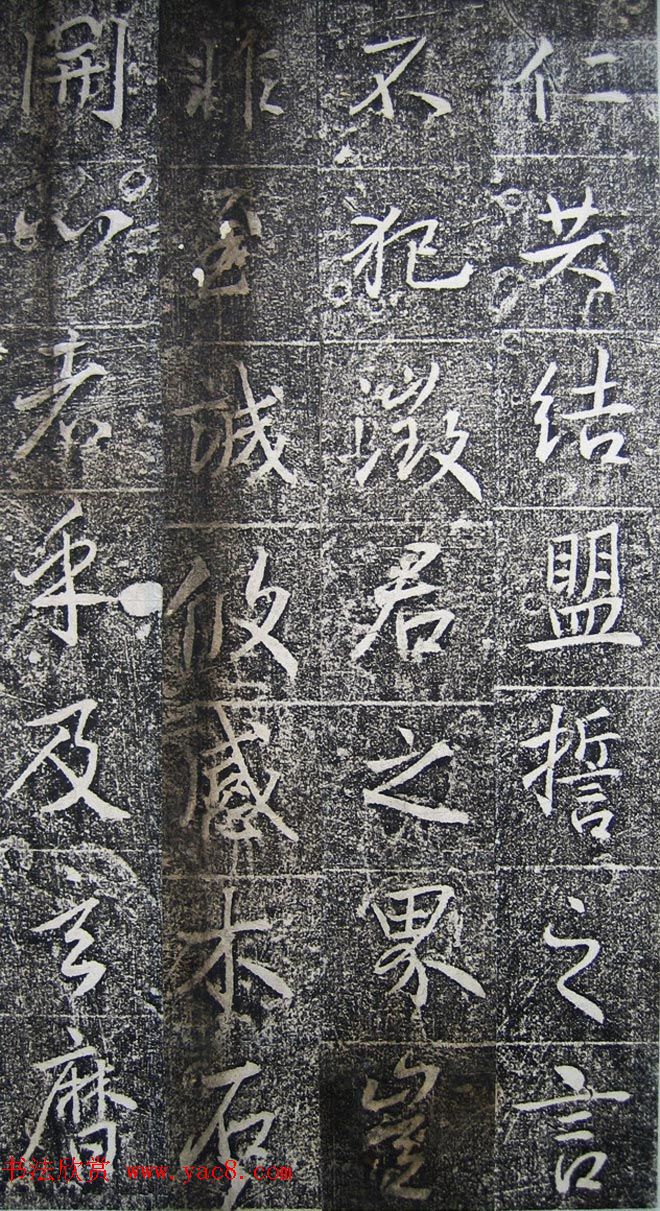 仁若結盟誓之言
不犯激君之界豈
非至誠攸感木石
開心者乎及玄曆
书法欣赏 www.yac8.com